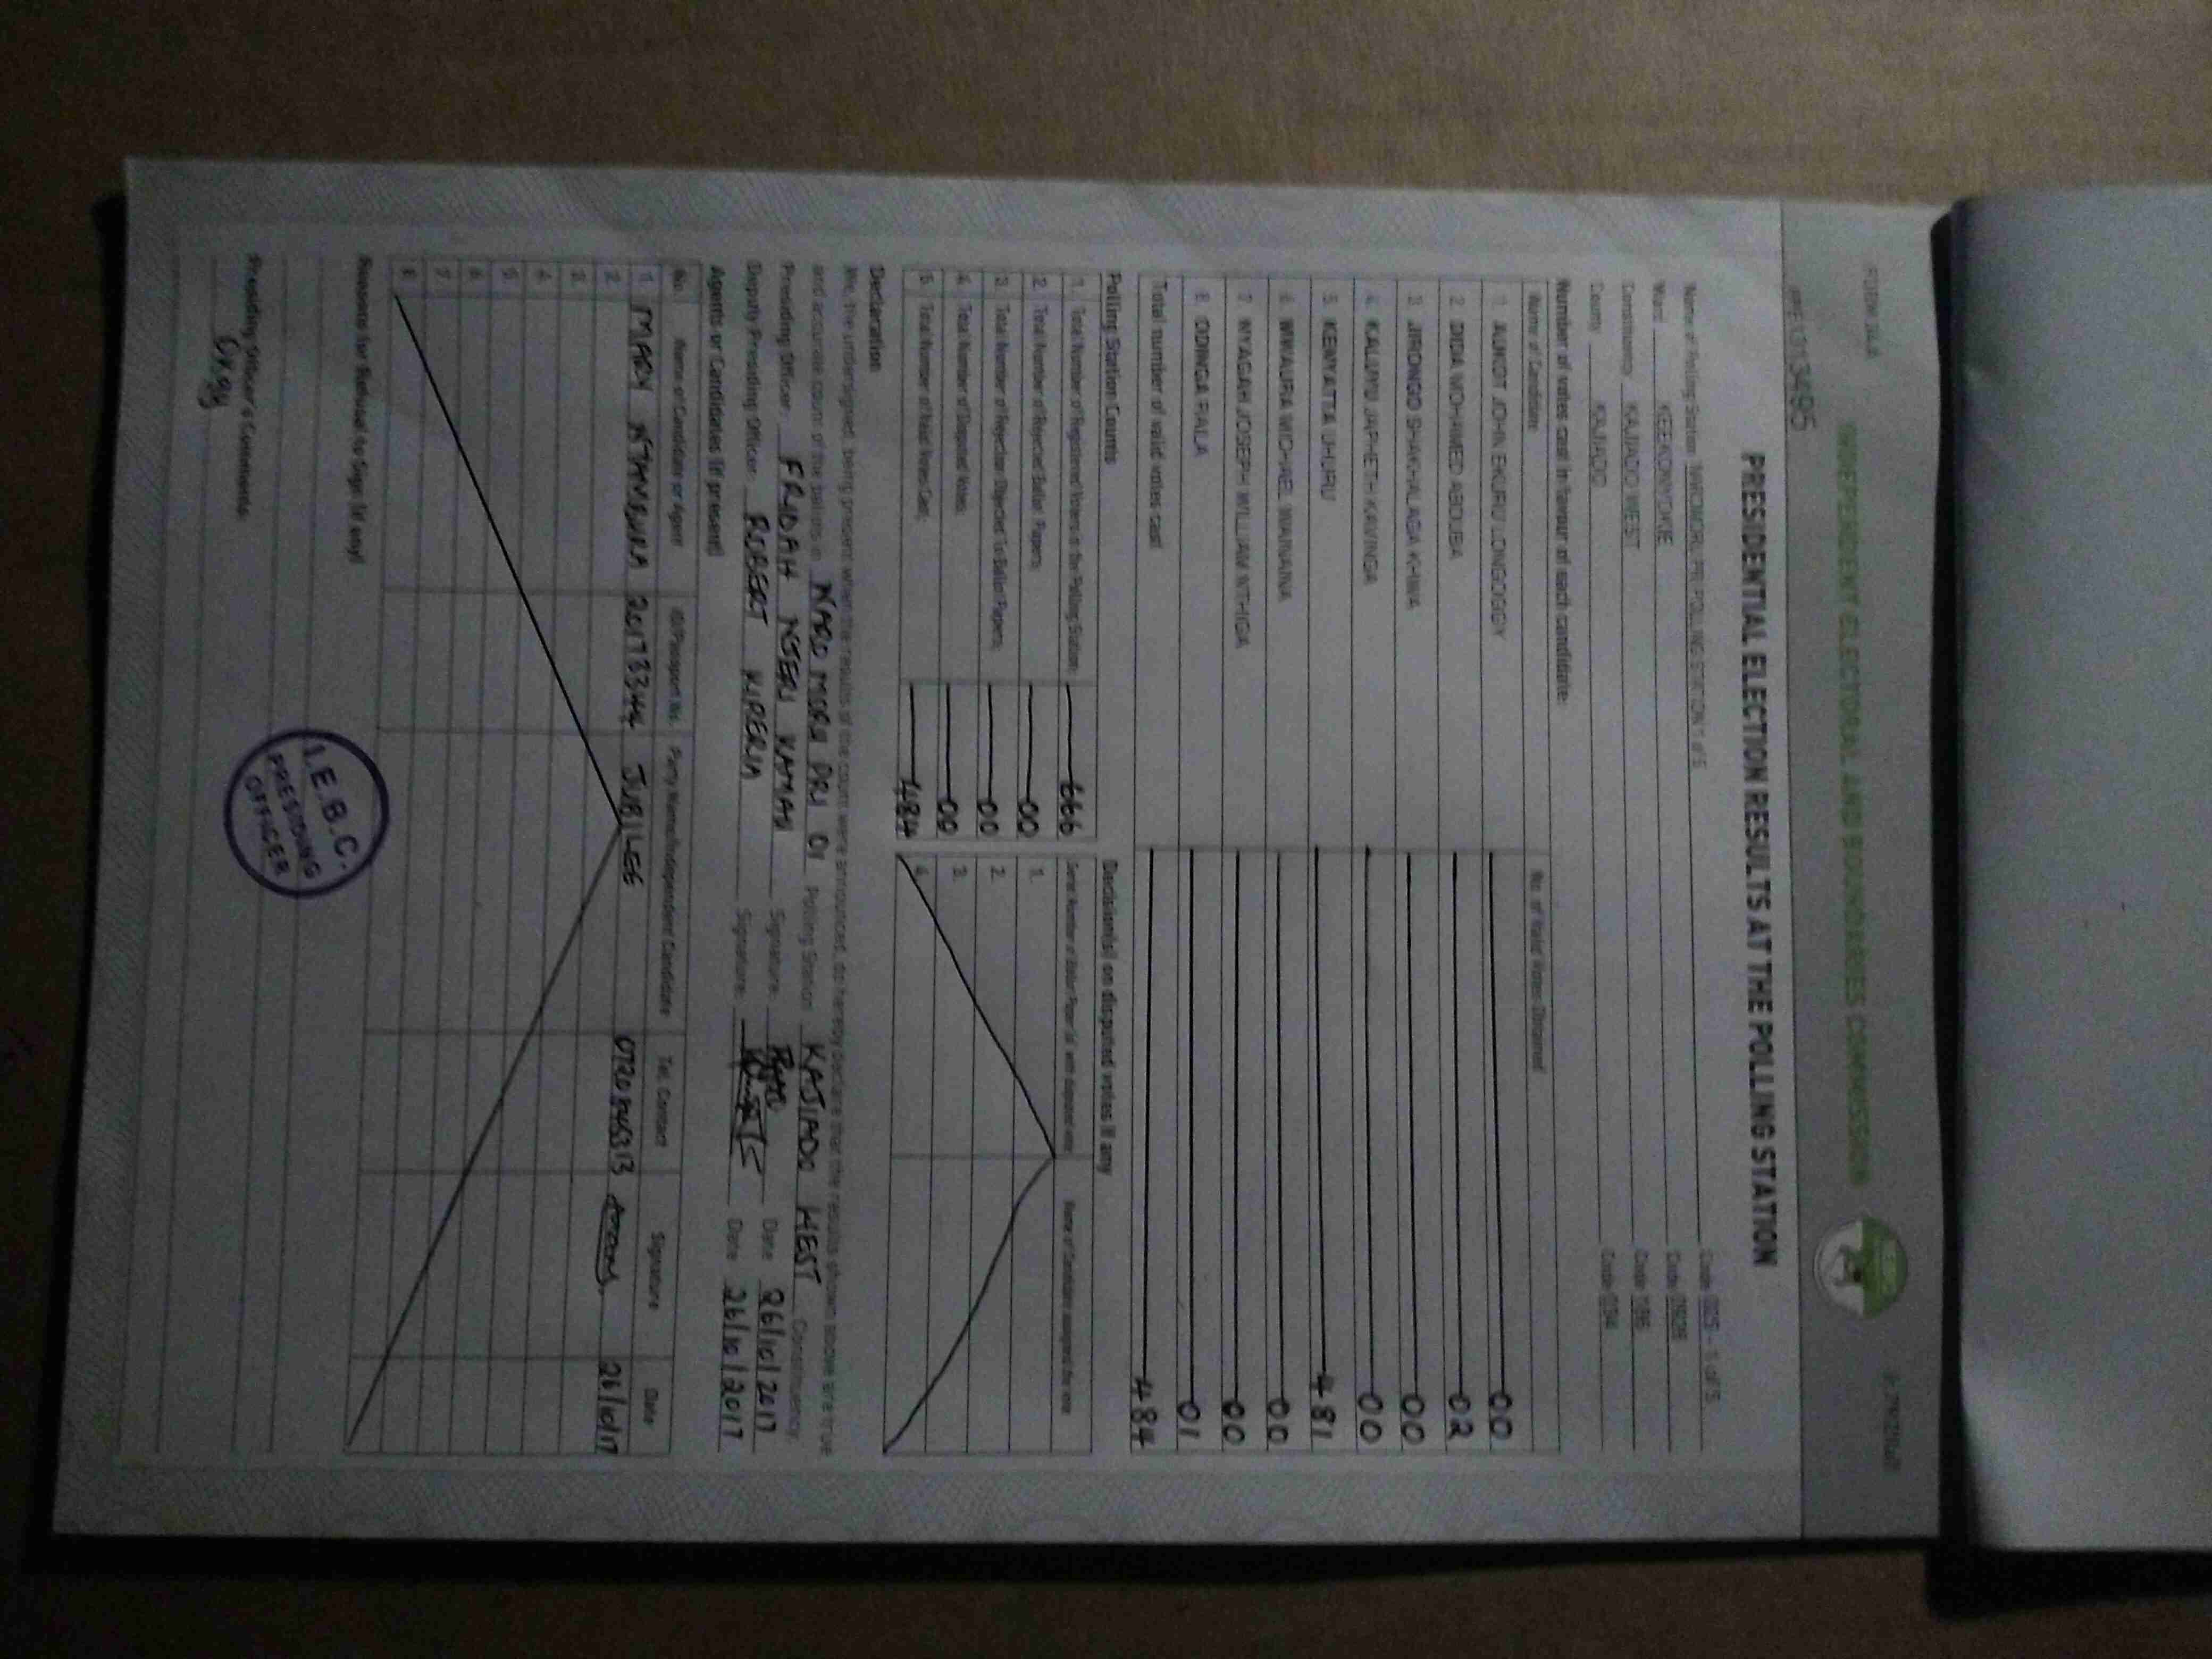 FORM 34A
INDEPENDENT ELECTORAL AND BOUNDARIES COMMISSION
PRESIDENTIAL ELECTION RESULTS AT THE POLLING STATION
Name of Polling Station POLLING STATION 1 of 5 Code - 1 of 5
Ward KEEKONYOKIE Code
Constituency KAJIADO WEST Code
County KAJIADO Code 034
Number of votes cast in favour of each candidate:
Name of Candidate No. of Valid Votes Obtained
1. AUKOT JOHN EKURU LONGOGGY 00
2. DIDA MOHAMED ABDUBA 02
3. JIRONGO SHAKHALAGA KHWA 00
4. KALUYU JAPHETH KAVINGA 00
5. KENYATTA UHURU 481
6. MWAURA MICHAEL WAINAINA 00
7. NYAGAH JOSEPH WILLIAM NTHIGA 00
8. ODINGA RAILA 01
Total number of valid votes cast 484
Polling Station Counts
1. Total Number of Registered Voters in the Polling Station: 666
2. Total Number of Rejected Ballot Papers: 00
3. Total Number of Rejection Objected To Ballot Papers: 00
4. Total Number of Disputed Votes: 00
5. Total Number of Valid Votes Cast: 484
Decision(s) on disputed votes if any
Serial Number of Ballot Paper (s) with disputed vote Name of Candidate assigned the vote
1.
2.
3.
4.
Declaration
We, the undersigned, being present when the results of the count were announced, do hereby declare that the results shown above are true
and accurate count of the ballots in NARO MORU PRI 01 Polling Station KAJIADO WEST Constituency.
Presiding Officer: FRIDAH NJERI KAMAU Signature: Date 26/10/2017
Deputy Presiding Officer: ROBERT KIPERIA Signature: Date 26/10/2017
Agents or Candidates (if present)
No. Name of Candidate or Agent ID/Passport No. Party Name/Independent Candidate Tel. Contact Signature Date
1. MARY 20173344 JUBILEE 26/10/17
2.
3.
4.
5.
6.
7.
8.
Reasons for Refusal to Sign (if any)
Presiding Officer's Comments:
Okay
I.E.B.C.
PRESIDING
OFFICER